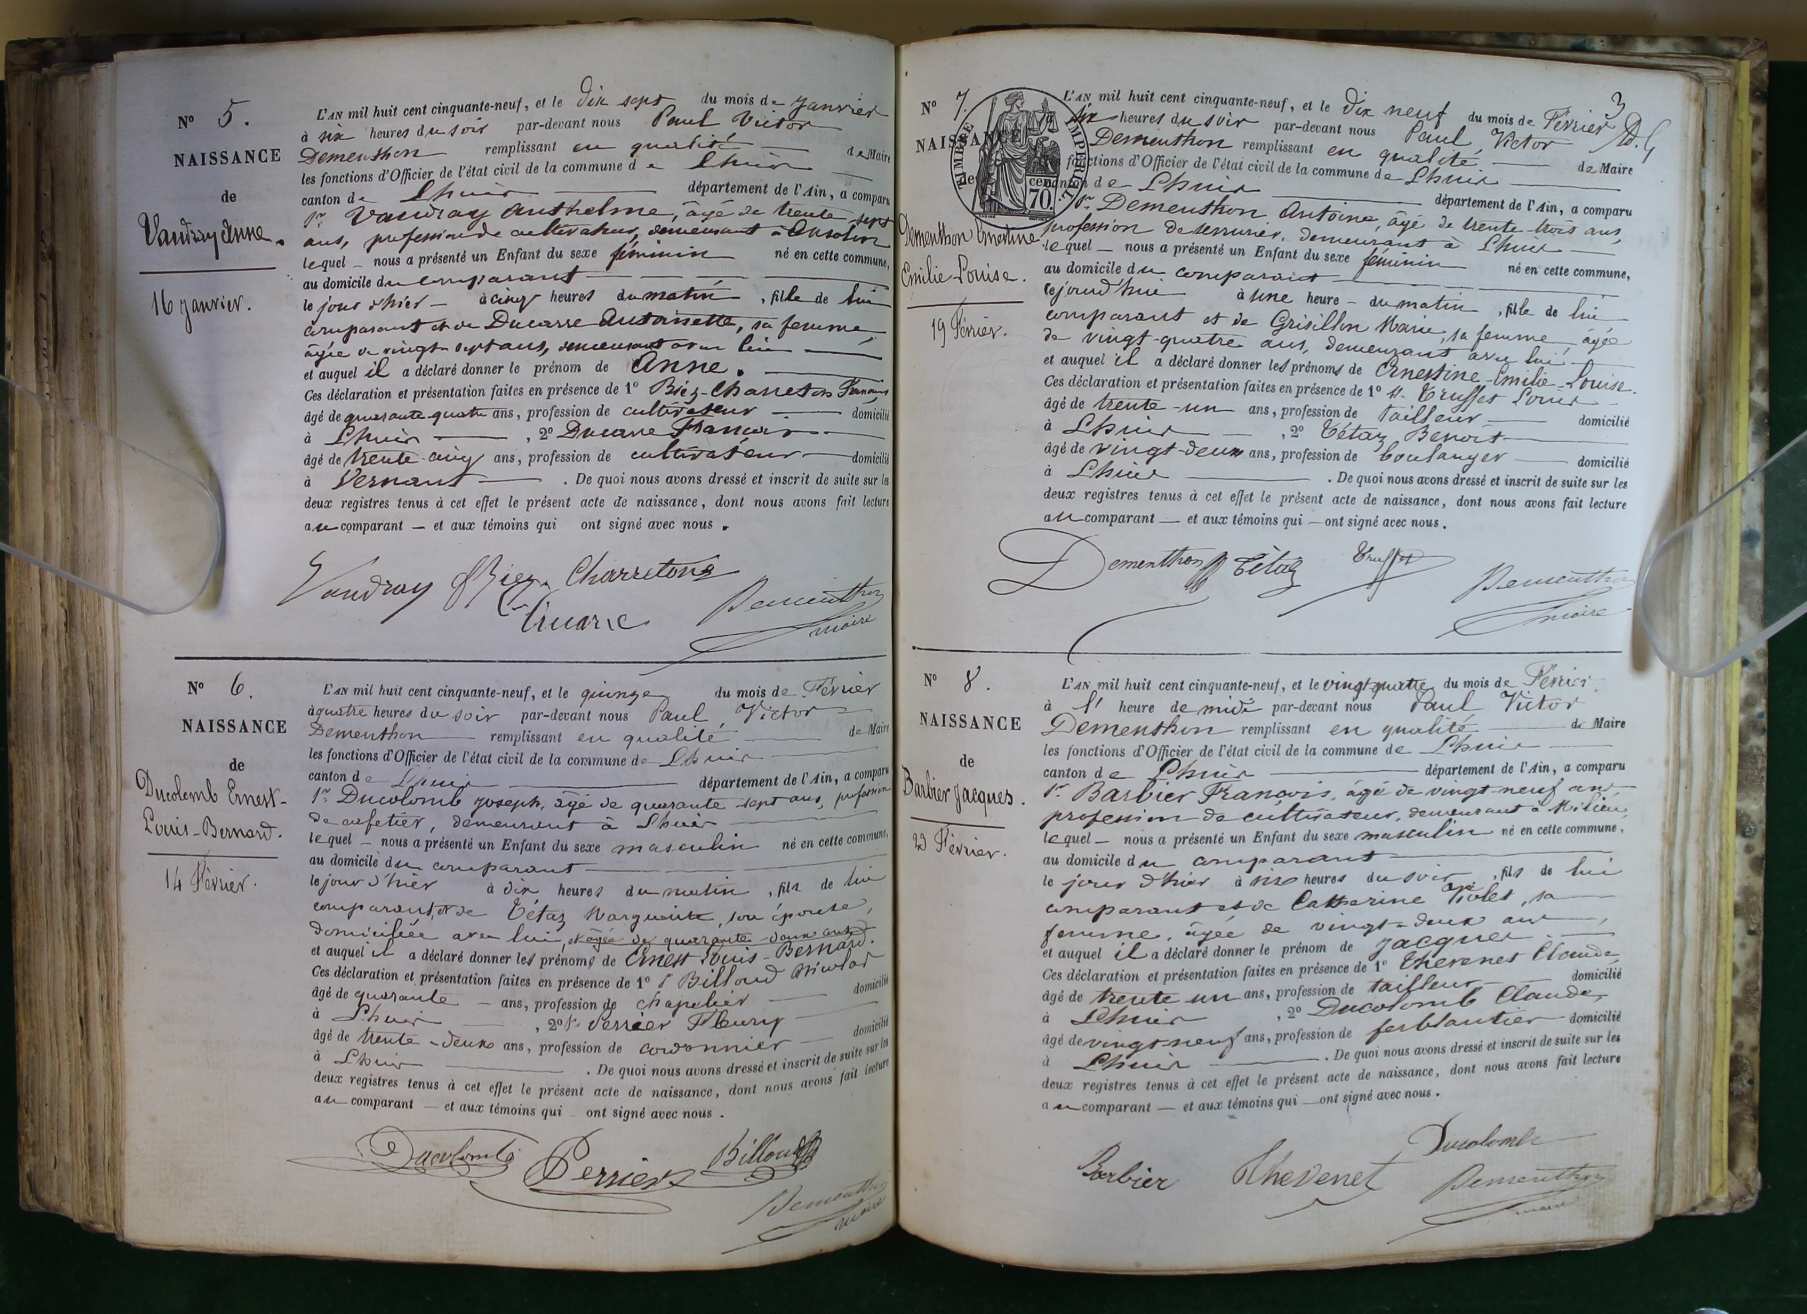 N° 5.
NAISSANCE
de
Vaudray Anne.
16 janvier.
L'AN mil huit cent cinquante-neuf, et le dix sept du mois de janvier
à six heures du soir par-devant nous Paul Victor
Dementhon remplissant en qualité de Maire
les fonctions d'Officier de l'état civil de la commune de Lhuis
canton de Lhuis département de l'Ain, a comparu
Sr Vaudray Anthelme, âgé de trente sept
ans, profession de cultivateur, demeurant à
lequel nous a présenté un Enfant du sexe féminin né en cette commune,
au domicile du comparant
le jour d'hier à cinq heures du matin, fille de lui
comparant et de Ducarre Antoinette, sa femme,
âgée de vingt-sept ans, demeurant avec lui
et auquel il a déclaré donner le prénom de Anne.
Ces déclaration et présentation faites en présence de 1° Biez-Charreton François
âgé de quarante-quatre ans, profession de cultivateur domicilié
à Lhuis, 2° Ducarre François
âgé de trente-cinq ans, profession de cultivateur domicilié
à Vernant. De quoi nous avons dressé et inscrit de suite sur les
deux registres tenus à cet effet le présent acte de naissance, dont nous avons fait lecture
au comparant et aux témoins qui ont signé avec nous.
Vaudray Biez Charreton
Ducarre Dementhon
maire
N° 6.
NAISSANCE
de
Ducolomb Ernest-
Louis-Bernard.
14 Février.
L'AN mil huit cent cinquante-neuf, et le quinze du mois de Février
à quatre heures du soir par-devant nous Paul, Victor
Dementhon remplissant en qualité de Maire
les fonctions d'Officier de l'état civil de la commune de Lhuis
canton de Lhuis département de l'Ain, a comparu
Sr Ducolomb Joseph, âgé de quarante-sept ans, profession
de cafetier, demeurant à Lhuis
lequel nous a présenté un Enfant du sexe masculin né en cette commune,
au domicile du comparant
le jour d'hier à dix heures du matin, fils de lui
comparant, et de Tétaz Marguerite, son épouse,
domiciliée avec lui, et âgée de quarante-deux ans
et auquel il a déclaré donner les prénoms de Ernest Louis-Bernard.
Ces déclaration et présentation faites en présence de 1° S Billoud Nicolas
âgé de quarante ans, profession de chapelier domicilié
à Lhuis, 2° Sr Perrier Fleury
âgé de trente-deux ans, profession de cordonnier domicilié
à Lhuis. De quoi nous avons dressé et inscrit de suite sur les
deux registres tenus à cet effet le présent acte de naissance, dont nous avons fait lecture
au comparant et aux témoins qui ont signé avec nous.
Ducolomb Perrier Billoud
Dementhon
maire
3
N° 7.
NAISSANCE
de
Dementhon Ernestine
Emilie-Louise.
19 Février.
TIMBRE IMPERIAL
70
L'AN mil huit cent cinquante-neuf, et le dix neuf du mois de Février
six heures du soir par-devant nous Paul, Victor
Dementhon remplissant en qualité de Maire
fonctions d'Officier de l'état civil de la commune de Lhuis
canton de Lhuis département de l'Ain, a comparu
Sr Dementhon Antoine, âgé de trente-trois ans,
profession de serrurier, demeurant à Lhuis
lequel nous a présenté un Enfant du sexe féminin né en cette commune,
au domicile du comparant
cejourd'hui à une heure du matin, fille de lui
comparant et de Grisillon Marie, sa femme, âgée
de vingt-quatre ans, demeurant avec lui
et auquel il a déclaré donner les prénoms de Ernestine-Emilie-Louise.
Ces déclaration et présentation faites en présence de 1° Sr Truffet Louis
âgé de trente-un ans, profession de tailleur domicilié
à Lhuis, 2° Tétaz Benoit
âgé de vingt-deux ans, profession de boulanger domicilié
à Lhuis. De quoi nous avons dressé et inscrit de suite sur les
deux registres tenus à cet effet le présent acte de naissance, dont nous avons fait lecture
au comparant et aux témoins qui ont signé avec nous.
Dementhon B Tétaz Truffet
Dementhon
maire
N° 8.
NAISSANCE
de
Barbier Jacques.
23 Février.
L'AN mil huit cent cinquante-neuf, et le vingt quatre du mois de Février
à l' heure de midi par-devant nous Paul Victor
Dementhon remplissant en qualité de Maire
les fonctions d'Officier de l'état civil de la commune de Lhuis
canton de Lhuis département de l'Ain, a comparu
Sr Barbier François, âgé de vingt-neuf ans
profession de cultivateur, demeurant à Milieu,
lequel nous a présenté un Enfant du sexe masculin né en cette commune,
au domicile du comparant
le jour d'hier à six heures du soir, fils de lui
comparant et de Catherine Violet, sa
femme, âgée de vingt-deux ans,
et auquel il a déclaré donner le prénom de Jacques
Ces déclaration et présentation faites en présence de 1° Thevenet Claude,
âgé de trente-un ans, profession de tailleur domicilié
à Lhuis, 2° Ducolomb Claude,
âgé de vingt-neuf ans, profession de ferblantier domicilié
à Lhuis. De quoi nous avons dressé et inscrit de suite sur les
deux registres tenus à cet effet le présent acte de naissance, dont nous avons fait lecture
au comparant et aux témoins qui ont signé avec nous.
Barbier Thevenet Ducolomb
Dementhon
maire